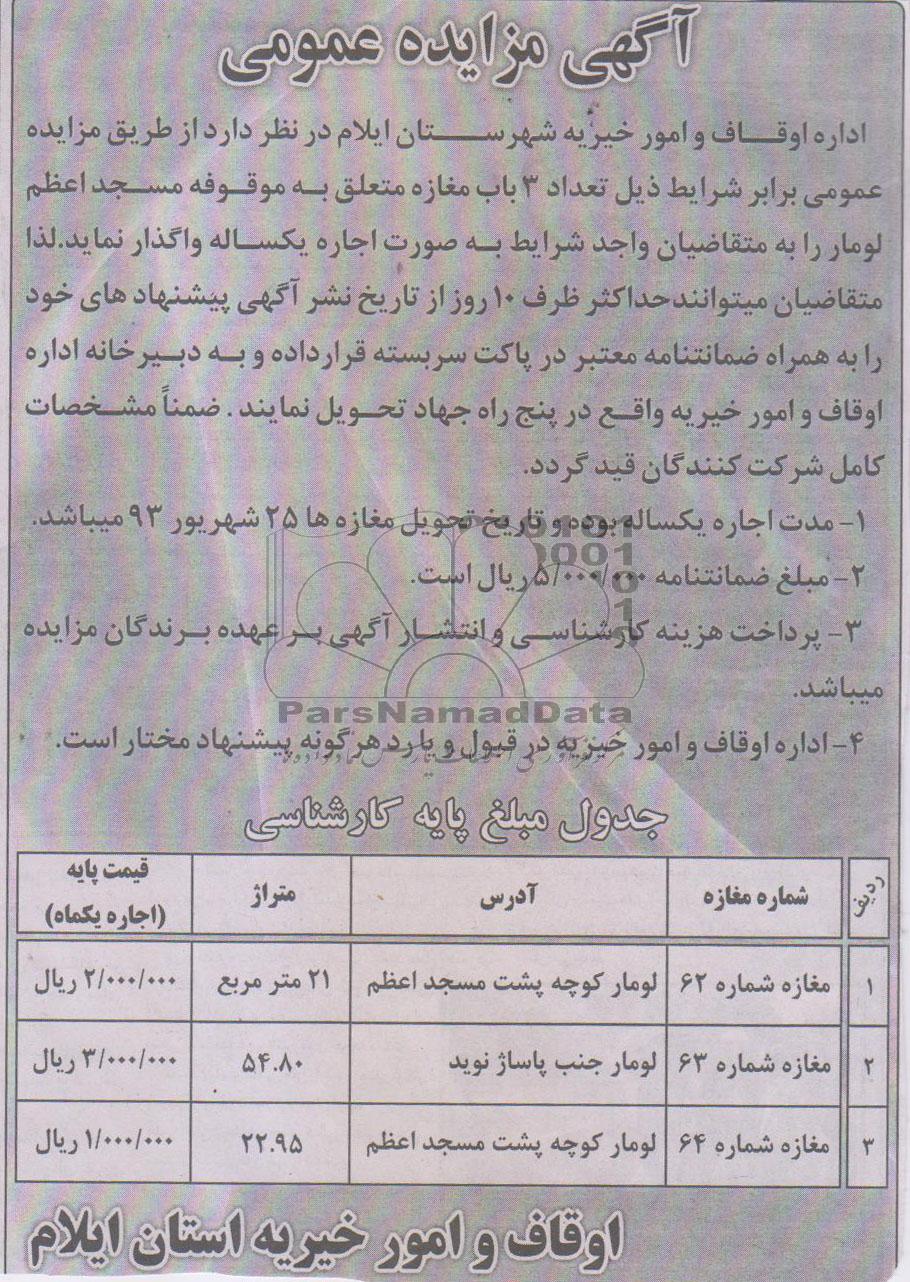 آگهی مزایده عمومی
اداره اوقاف و امور خیریه شهرستان ایلام در نظر دارد از طریق مزایده
عمومی برابر شرایط ذیل تعداد ۳ باب مغازه متعلق به موقوفه مسجد اعظم
لومار را به متقاضیان واجد شرایط به صورت اجاره یکساله واگذار نماید.لذا
متقاضیان میتوانندحداکثر ظرف ۱۰ روز از تاریخ نشر آگهی پیشنهاد های خود
را به همراه ضمانتنامه معتبر در پاکت سربسته قرارداده و به دبیرخانه اداره
اوقاف و امور خیریه واقع در پنج راه جهاد تحویل نمایند . ضمناً مشخصات
کامل شرکت کنندگان قید گردد.
۱- مدت اجاره یکساله بوده و تاریخ تحویل مغازه ها ۲۵ شهریور ۹۳ میباشد.
۲- مبلغ ضمانتنامه ۵/۰۰۰/۰۰۰ ریال است.
۳- پرداخت هزینه کارشناسی و انتشار آگهی بر عهده برندگان مزایده
میباشد.
ParsNamadData
۴- اداره اوقاف و امور خیریه در قبول و یا رد هرگونه پیشنهاد مختار است.
جدول مبلغ پایه کارشناسی
ردیف شماره مغازه آدرس متراژ قیمت پایه
(اجاره یکماه)
۱ مغازه شماره ۶۲ لومار کوچه پشت مسجد اعظم ۲۱ متر مربع ۲/۰۰۰/۰۰۰ ریال
۲ مغازه شماره ۶۳ لومار جنب پاساژ نوید ۵۴.۸۰ ۳/۰۰۰/۰۰۰ ریال
۳ مغازه شماره ۶۴ لومار کوچه پشت مسجد اعظم ۲۲.۹۵ ۱/۰۰۰/۰۰۰ ریال
اوقاف و امور خیریه استان ایلام